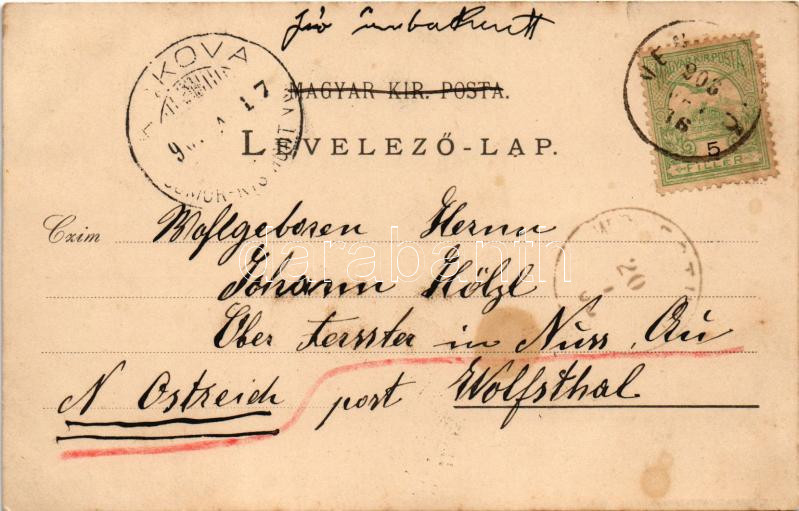 MAGYAR KIR. POSTA.
LEVELEZŐ-LAP.
MAGYAR KIR. POSTA
5
FILLÉR
KOVA
17
GÖMÖR-KIS-HONT VM
906
16
20
Czim
Wohlgeboren Herrn
Johann Hölzl
Ober Fersster in Nuss Au
N Ostreich post Wolfsthal
darabanth